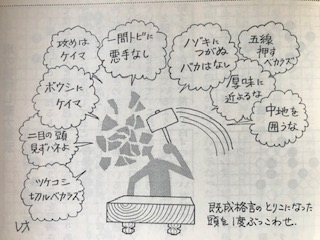 攻めは
ケイマ
一間トビに
悪手なし
ノゾキに
つがぬ
バカはなし
五線
押す
ベカラズ
ボウシに
ケイマ
厚味に
近よるな
中地を
囲うな
二目の頭
見ずハネよ
ツケコシ
切ルベカラズ
既成格言のとりこになった
頭を1度ぶっこわせ..
レオ